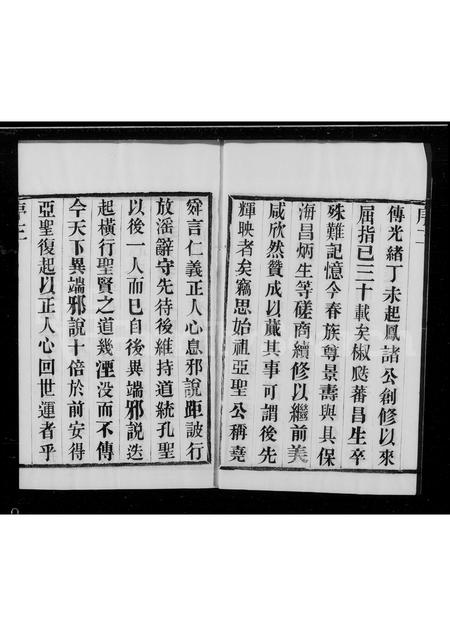 傳光緒丁未起鳳諸公創修以來
屈指已三十載矣椒瓞蕃昌生卒
殊難記憶今春族尊景壽與具保
海昌炳生等磋商續修以繼前美
咸欣然贊成以蕆其事可謂後先
輝映者矣竊思始祖亞聖公稱堯
舜言仁義正人心息邪說距詖行
放滛辭守先待後維持道統孔聖
以後一人而已自後異端邪說迭
起橫行聖賢之道幾湮没而不傳
今天下異端邪說十倍於前安得
亞聖復起以正人心回世運者乎